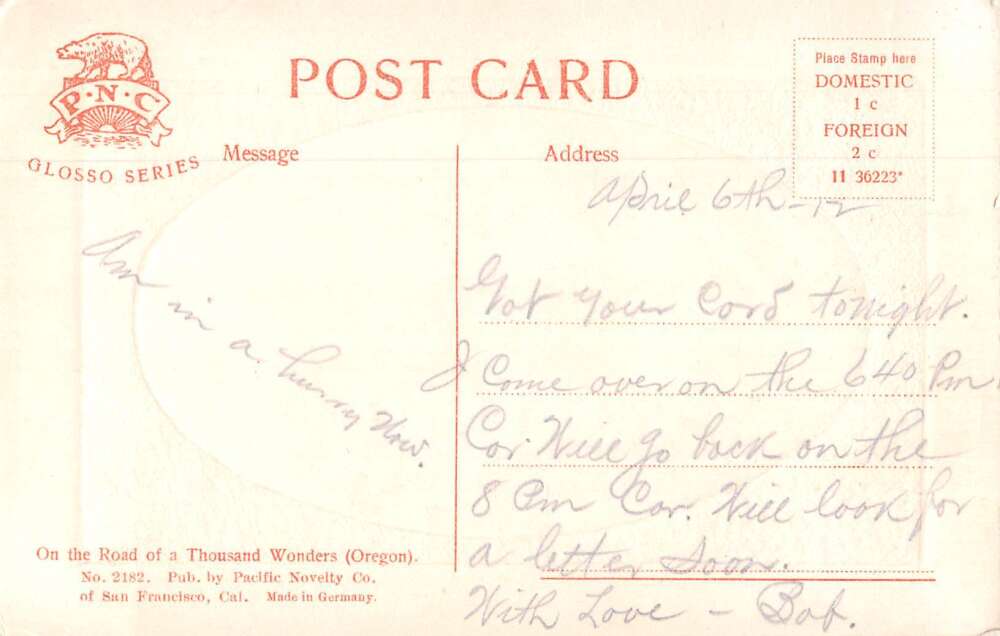 P·N·C
GLOSSO SERIES
POST CARD
Place Stamp here
DOMESTIC
1 c
FOREIGN
2 c
11 36223*
Message
Address
April 6th-12
Got your Card tonight.
I Come over on the 640 Pm
Car Will go back on the
8 Pm Car. Will look for
a letter Soon.
With Love - Bob.
Am in a hurry now.
On the Road of a Thousand Wonders (Oregon).
No. 2182. Pub. by Pacific Novelty Co.
of San Francisco, Cal. Made in Germany.